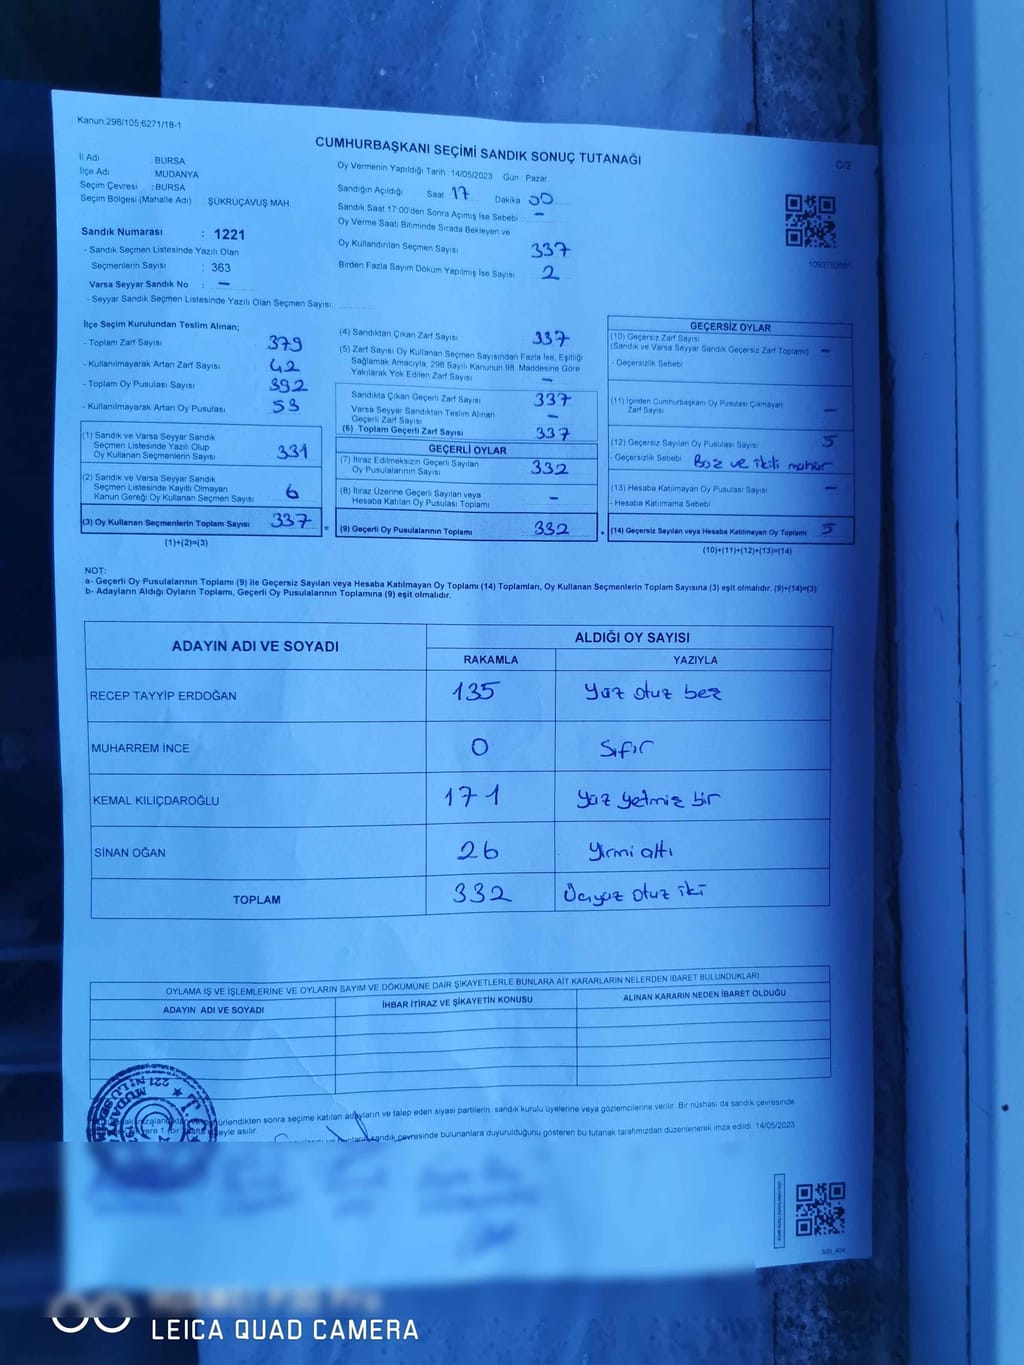 Kanun:298/105,6271/18-1
CUMHURBAŞKANI SEÇİMİ SANDIK SONUÇ TUTANAĞI
C/2
İl Adı BURSA
İlçe Adı MUDANYA
Seçim Çevresi : BURSA
Seçim Bölgesi (Mahalle Adı) ŞÜKRÜÇAVUŞ MAH.
Oy Vermenin Yapıldığı Tarih 14/05/2023 Gün Pazar
Sandığın Açıldığı Saat 17 Dakika 00
Sandık Saat 17:00'den Sonra Açımış İse Sebebi –
Oy Verme Saati Bitiminde Sırada Bekleyen ve
Oy Kullandırılan Seçmen Sayısı 337
Birden Fazla Sayım Döküm Yapılmış İse Sayısı 2
Sandık Numarası : 1221
- Sandık Seçmen Listesinde Yazılı Olan
Seçmenlerin Sayısı : 363
Varsa Seyyar Sandık No : –
- Seyyar Sandık Listesinde Yazılı Olan Seçmen Sayısı:
İlçe Seçim Kurulundan Teslim Alınan;
- Toplam Zarf Sayısı 379
- Kullanılmayarak Artan Zarf Sayısı 42
- Toplam Oy Pusulası Sayısı 392
- Kullanılmayarak Artan Oy Pusulası 53
(1) Sandık ve Varsa Seyyar Sandık
Seçmen Listesinde Yazılı Olup
Oy Kullanan Seçmenlerin Sayısı 331
(2) Sandık ve Varsa Seyyar Sandık
Seçmen Listesinde Kayıtlı Olmayan
Kanun Gereği Oy Kullanan Seçmen Sayısı 6
(3) Oy Kullanan Seçmenlerin Toplam Sayısı 337 =
(1)+(2)=(3)
(4) Sandıktan Çıkan Zarf Sayısı 337
(5) Zarf Sayısı Oy Kullanan Seçmen Sayısından Fazla İse, Eşitliği
Sağlamak Amacıyla, 298 Sayılı Kanunun 98. Maddesine Göre
Yakılarak Yok Edilen Zarf Sayısı –
Sandıkta Çıkan Geçerli Zarf Sayısı 337
Varsa Seyyar Sandıktan Teslim Alınan
Geçerli Zarf Sayısı –
(6) Toplam Geçerli Zarf Sayısı 337
GEÇERLİ OYLAR
(7) İtiraz Edilmeksizin Geçerli Sayılan
Oy Pusulalarının Sayısı 332
(8) İtiraz Üzerine Geçerli Sayılan veya
Hesaba Katılan Oy Pusulası Toplamı –
(9) Geçerli Oy Pusulalarının Toplamı 332 +
GEÇERSİZ OYLAR
(10) Geçersiz Zarf Sayısı
(Sandık ve Varsa Seyyar Sandık Geçersiz Zarf Toplamı) –
- Geçersizlik Sebebi
(11) İçinden Cumhurbaşkanı Oy Pusulası Çıkmayan
Zarf Sayısı –
(12) Geçersiz Sayılan Oy Pusulası Sayısı 5
- Geçersizlik Sebebi Boz ve ikili mühür
(13) Hesaba Katılmayan Oy Pusulası Sayısı –
- Hesaba Katılmama Sebebi
(14) Geçersiz Sayılan veya Hesaba Katılmayan Oy Toplamı 5
(10)+(11)+(12)+(13)=(14)
NOT:
a- Geçerli Oy Pusulalarının Toplamı (9) ile Geçersiz Sayılan veya Hesaba Katılmayan Oy Toplamı (14) Toplamları, Oy Kullanan Seçmenlerin Toplam Sayısına (3) eşit olmalıdır. (9)+(14)=(3)
b- Adayların Aldığı Oyların Toplamı, Geçerli Oy Pusulalarının Toplamına (9) eşit olmalıdır.
ADAYIN ADI VE SOYADI
ALDIĞI OY SAYISI
RAKAMLA YAZIYLA
RECEP TAYYİP ERDOĞAN 135 Yüz otuz beş
MUHARREM İNCE 0 Sıfır
KEMAL KILIÇDAROĞLU 171 Yüz yetmiş bir
SİNAN OĞAN 26 Yirmi altı
TOPLAM 332 Üçyüz otuz iki
OYLAMA İŞ VE İŞLEMLERİNE VE OYLARIN SAYIM VE DÖKÜMÜNE DAİR ŞİKAYETLERLE BUNLARA AİT KARARLARIN NELERDEN İBARET BULUNDUKLARI
ADAYIN ADI VE SOYADI İHBAR İTİRAZ VE ŞİKAYETİN KONUSU ALINAN KARARIN NEDEN İBARET OLDUĞU
sonra seçime katılan adayların ve talep eden siyasi partilerin, sandık kurulu üyelerine veya gözlemcilerine verilir. Bir nüshası da sandık çevresinde
asılır.
sandık çevresinde bulunanlara duyurulduğunu gösteren bu tutanak tarafımızdan düzenlenerek imza edildi. 14/05/2023
LEICA QUAD CAMERA